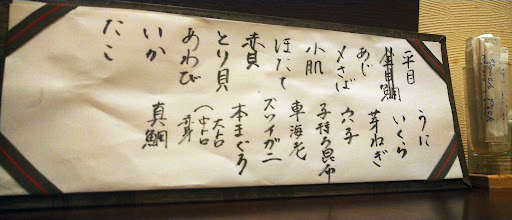 平目
あじ
〆さば
小肌
ほたて
赤貝
とり貝
あわび
いか
たこ
うに
いくら
芽ねぎ
穴子
子持ち昆布
車海老
ズワイガニ
本まぐろ
大トロ
中トロ
赤身
真鯛